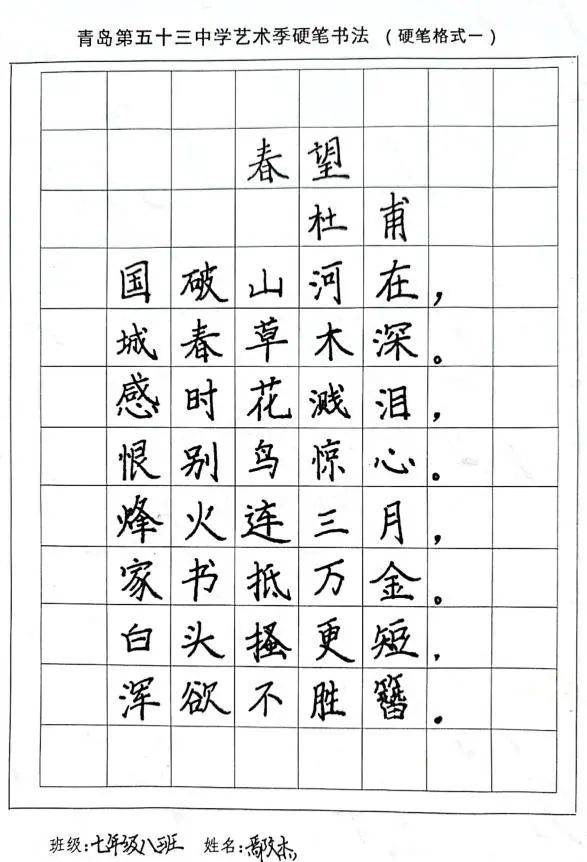 青岛第五十三中学艺术季硬笔书法 （硬笔格式一）
春望
杜甫
国破山河在，
城春草木深。
感时花溅泪，
恨别鸟惊心。
烽火连三月，
家书抵万金。
白头搔更短，
浑欲不胜簪。
班级：七年级八班 姓名：